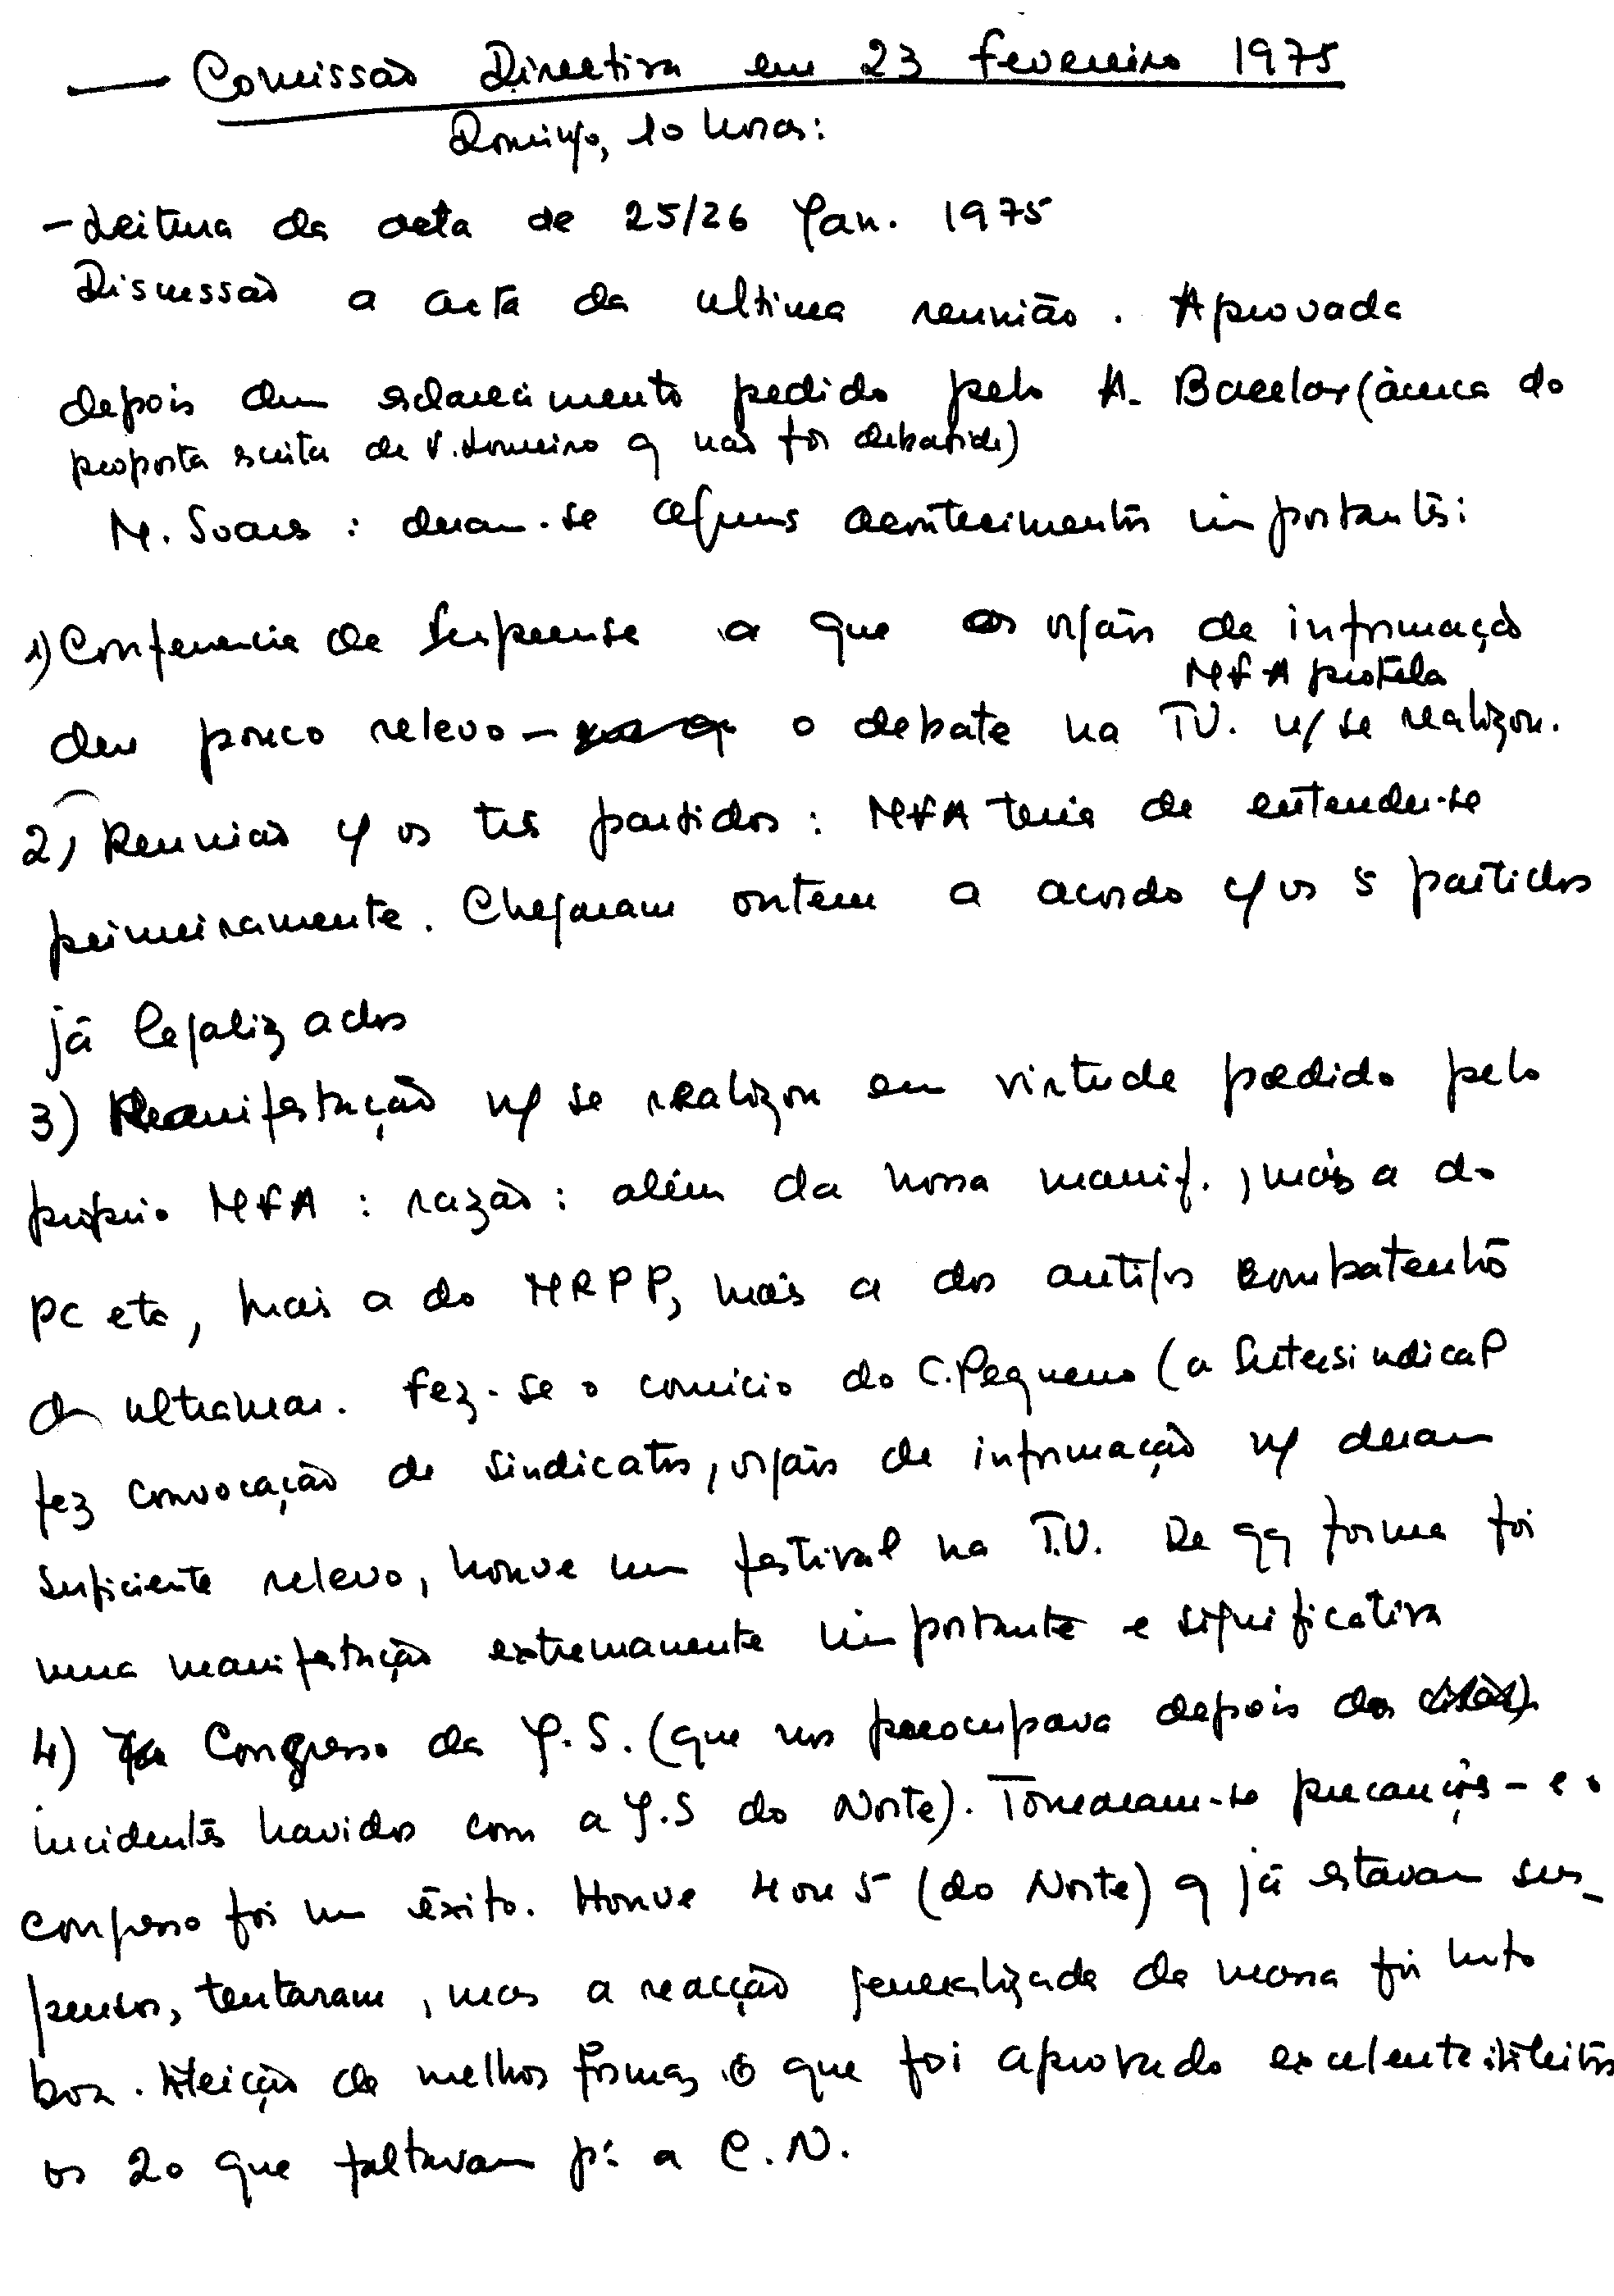 — Comissão Directiva em 23 fevereiro 1975
Domingo, 10 horas:
- Leitura da acta de 25/26 Jan. 1975
Discussão a acta da ultima reunião. Aprovada
depois dum esclarecimento pedido pelo A. Bacelar (àcerca do
proposta escrita de V. Loureiro q não foi debatida)
M. Soares : deram-se alguns acontecimentos importantes:
1) Conferencia de Imprensa a que os orgãos de informação
MFA protela
deu pouco relevo - o debate na TV. n/ se realizou.
2) Reunião c/ os três partidos : MFA teria de entender-se
primeiramente. Chegaram ontem a acordo c/ os 5 partidos
já legalizados
3) Manifestação n/ se realizou em virtude pedido pelo
próprio MFA : razão : além da nossa manif., mais a do
PC etc, mais a do MRPP, mais a dos antigos Combatentes
do ultramar. Fez-se o comício do C. Pequeno (a Intersindical
fez convocação de sindicatos, orgãos de informação n/ deram
suficiente relevo, houve um festival na T.V. De qq forma foi
uma manifestação extremamente importante e significativa
4) Congresso da J.S. (que nos preocupava depois dos
incidentes havidos com a J.S do Norte). Tomaram-se precauções - e o
congresso foi um êxito. Houve 4 ou 5 (do Norte) q já estavam sus-
pensos, tentaram, mas a reacção generalizada da massa foi muto
boa. Eleição da melhor forma, o que foi aprovado excelente. Eleitos
os 20 que faltavam p.ª a C.N.